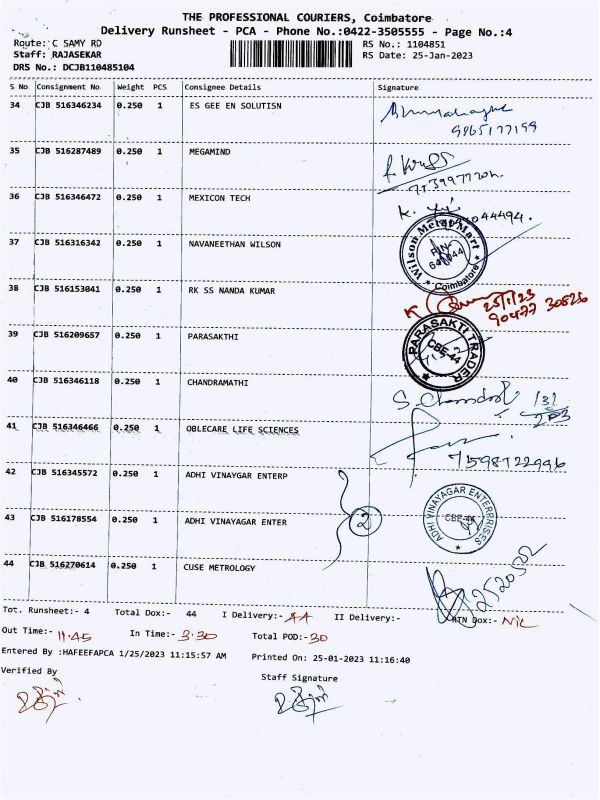 THE PROFESSIONAL COURIERS, Coimbatore
Delivery Runsheet - PCA - Phone No.:0422-3505555 - Page No.:4
Route: C SAMY RD RS No.: 1104851
Staff: RAJASEKAR RS Date: 25-Jan-2023
DRS No.: DCJB110485104
S No Consignment No Weight PCS Consignee Details Signature
34 CJB 516346234 0.250 1 ES GEE EN SOLUTISN
9865177199
35 CJB 516287489 0.250 1 MEGAMIND
36 CJB 516346472 0.250 1 MEXICON TECH
37 CJB 516316342 0.250 1 NAVANEETHAN WILSON
Wilson Metal Mart
PIN
641044
Coimbatore
38 CJB 516153041 0.250 1 RK SS NANDA KUMAR
25/1/23
90477 30826
39 CJB 516209657 0.250 1 PARASAKTHI
PARASAKTI TRADER
CBE-44
40 CJB 516346118 0.250 1 CHANDRAMATHI
41 CJB 516346466 0.250 1 OBLECARE LIFE SCIENCES
7598722996
42 CJB 516345572 0.250 1 ADHI VINAYGAR ENTERP
43 CJB 516178554 0.250 1 ADHI VINAYAGAR ENTER
2
ADHI VINAYAGAR ENTERPRISES
CBE-44
44 CJB 516270614 0.250 1 CUSE METROLOGY
Tot. Runsheet:- 4 Total Dox:- 44 I Delivery:- 44 II Delivery:- RTN Dox:- NIL
Out Time:- 11.45 In Time:- 3.30 Total POD:- 30
Entered By :HAFEEFAPCA 1/25/2023 11:15:57 AM Printed On: 25-01-2023 11:16:40
Verified By Staff Signature